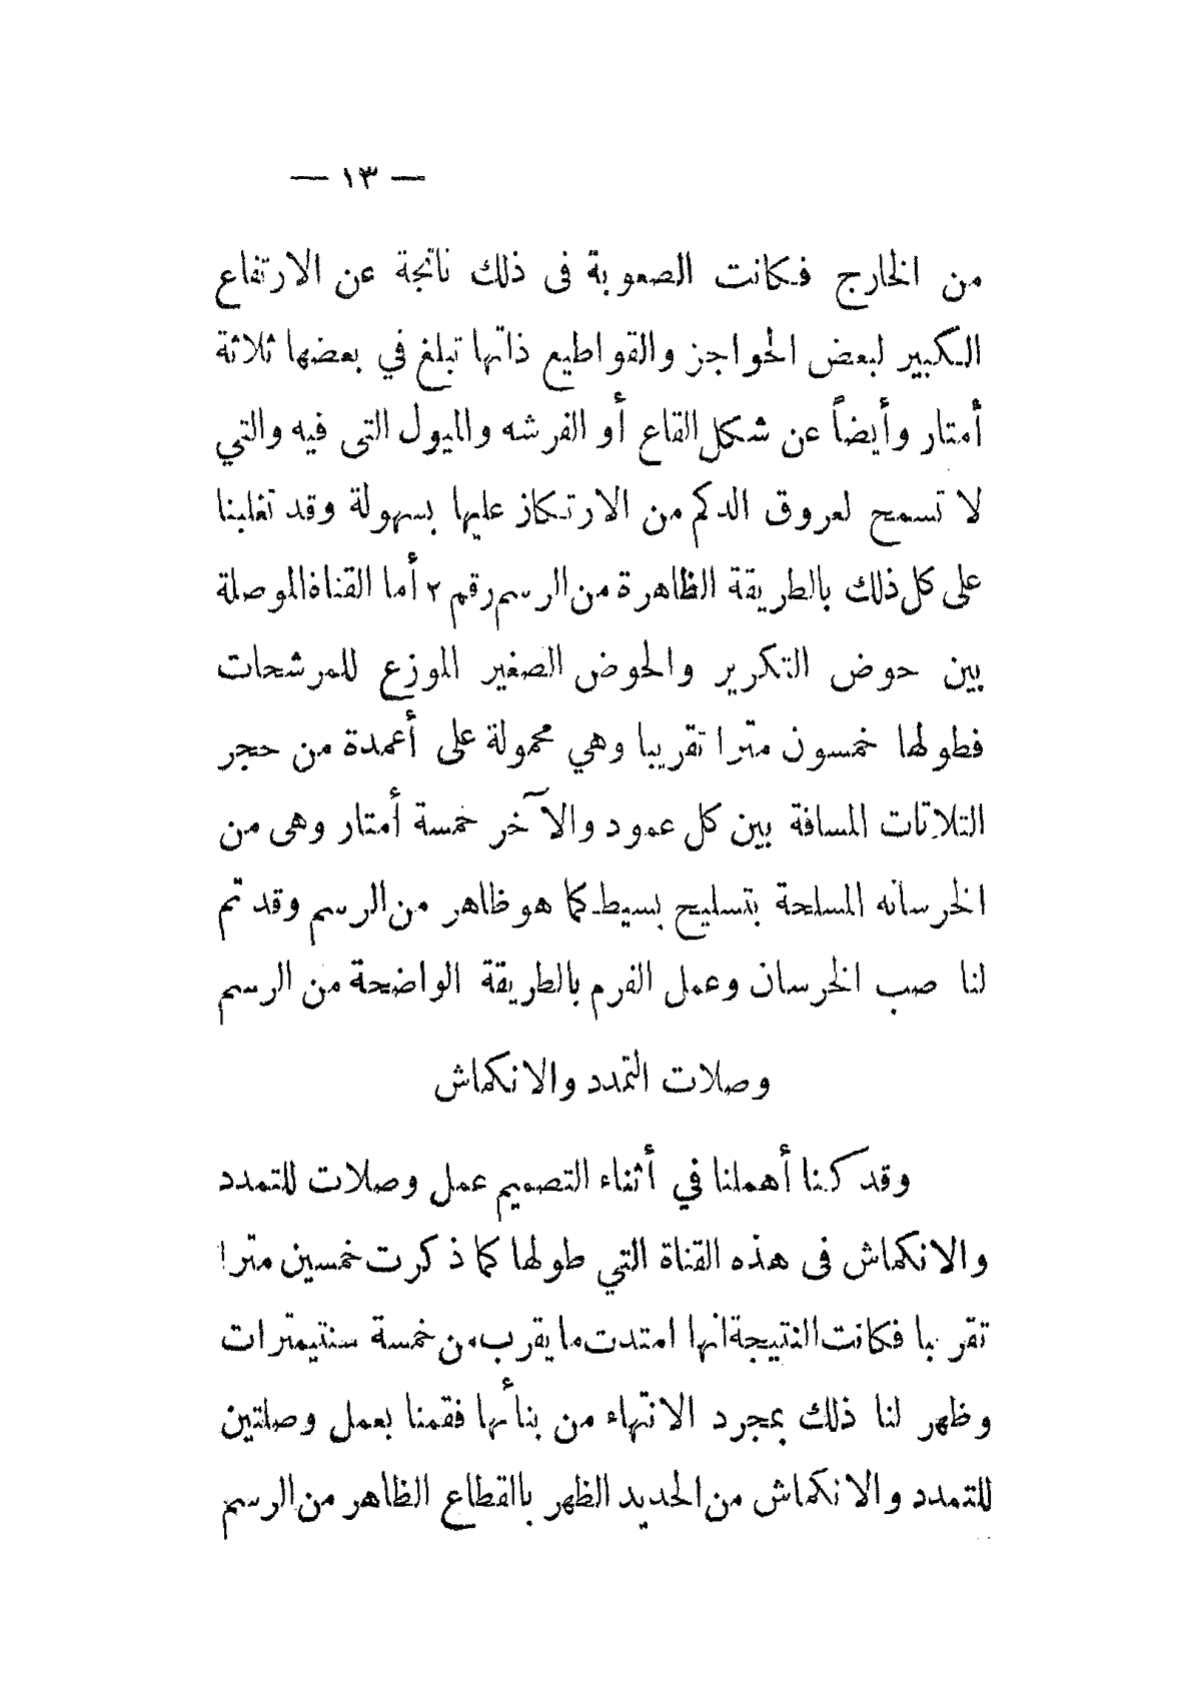 — ١٣ —
من الخارج فكانت الصعوبة فى ذلك ناتجة عن الارتفاع
الكبير لبعض الحواجز والقواطيع ذاتها تبلغ في بعضها ثلاثة
أمتار وأيضاً عن شكل القاع أو الفرشه والميول التى فيه والتي
لا تسمح لعروق الدكم من الارتكاز عليها بسهولة وقد تغلبنا
على كل ذلك بالطريقة الظاهرة من الرسم رقم ٢ أما القناة الموصلة
بين حوض التكرير والحوض الصغير الموزع للمرشحات
فطولها خمسون مترا تقريبا وهي محمولة على أعمدة من حجر
التلاتات المسافة بين كل عمود والآخر خمسة أمتار وهى من
الخرسانه المسلحة بتسليح بسيط كما هو ظاهر من الرسم وقد تم
لنا صب الخرسان وعمل الفرم بالطريقة الواضحة من الرسم
وصلات التمدد والانكماش
وقد كنا أهملنا في أثناء التصميم عمل وصلات للتمدد
والانكماش فى هذه القناة التي طولها كما ذكرت خمسين مترا
تقريبا فكانت النتيجة انها امتدت ما يقرب من خمسة سنتيمترات
وظهر لنا ذلك بمجرد الانتهاء من بنأها فقمنا بعمل وصلتين
للتمدد والانكماش من الحديد الظهر بالقطاع الظاهر من الرسم